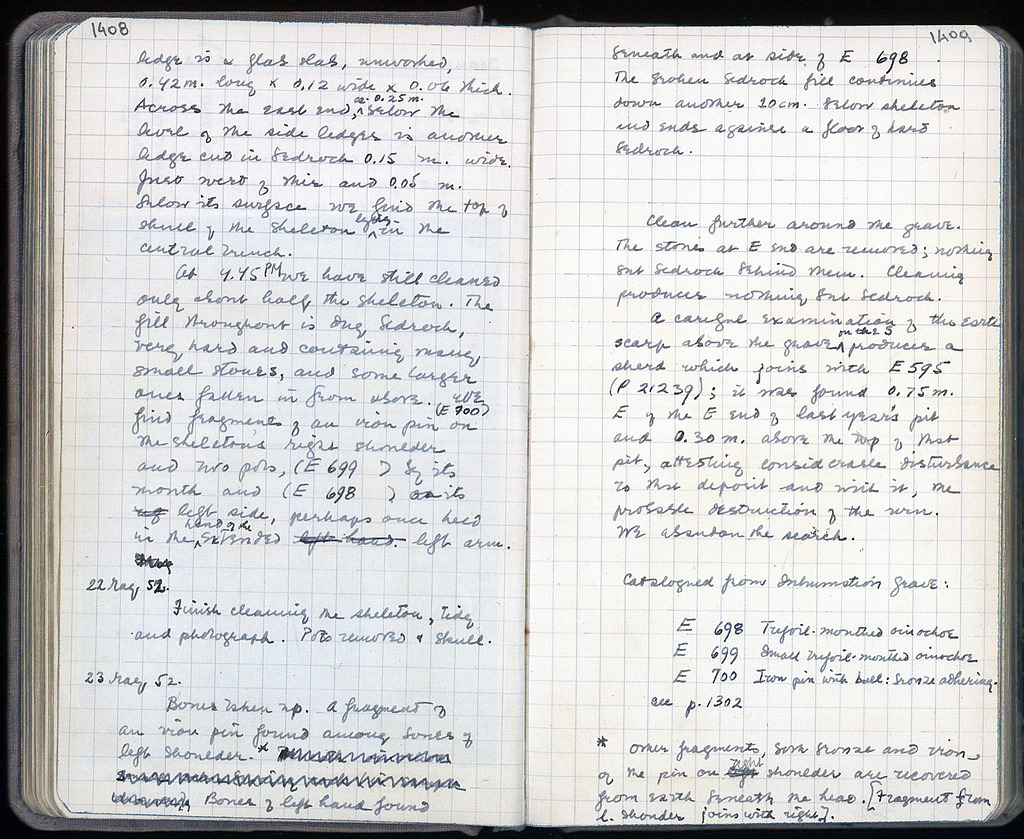 1408
ledge is a flat slab, unworked,
0.42m. long x 0.12 wide x 0.06 thick.
Across the east end, ca. 0.25 m. below the
level of the side ledges is another
ledge cut in bedrock 0.15 m. wide.
Just west of this and 0.05 m.
below its surface we find the top of
skull of the skeleton lying in the
central trench.
At 4.45 PM we have still cleaned
only about half the skeleton. The
fill throughout is dug bedrock,
very hard and containing many
small stones, and some larger
ones fallen in from above. We
find fragments of an iron pin (E 700) on
the skeleton's right shoulder
and two pots, (E 699 ) by its
mouth and (E 698 ) on its
left side, perhaps once held
in the hand of the extended left hand. left arm.
22 May, 52.
Finish cleaning the skeleton, tidy
and photograph. Pots removed & skull.
23 May, 52.
Bones taken up. A fragment of
an iron pin found among bones of
left shoulder. *
Bones of left hand found
1409
beneath and at side of E 698.
The broken bedrock fill continues
down another 10cm. below skeleton
and ends against a floor of hard
bedrock.
Clean further around the grave.
The stones at E end are removed; nothing
but bedrock behind them. Cleaning
produces nothing but bedrock.
A careful examination of the earth
scarp above the grave on the S produces a
sherd which joins with E 595
(P 21239); it was found 0.75 m.
E of the E end of last year's pit
and 0.30 m. above the top of that
pit, attesting considerable disturbance
to that deposit and with it, the
probable destruction of the urn.
We abandon the search.
Catalogued from Inhumation grave:
E 698 Trefoil-mouthed oinochoe
E 699 Small trefoil-mouthed oinochoe
E 700 Iron pin with ball: bronze adhering.
see p. 1302
* other fragments, both bronze and iron,
of the pin on right shoulder are recovered
from earth beneath the head. [Fragment from
l. shoulder joins with right].